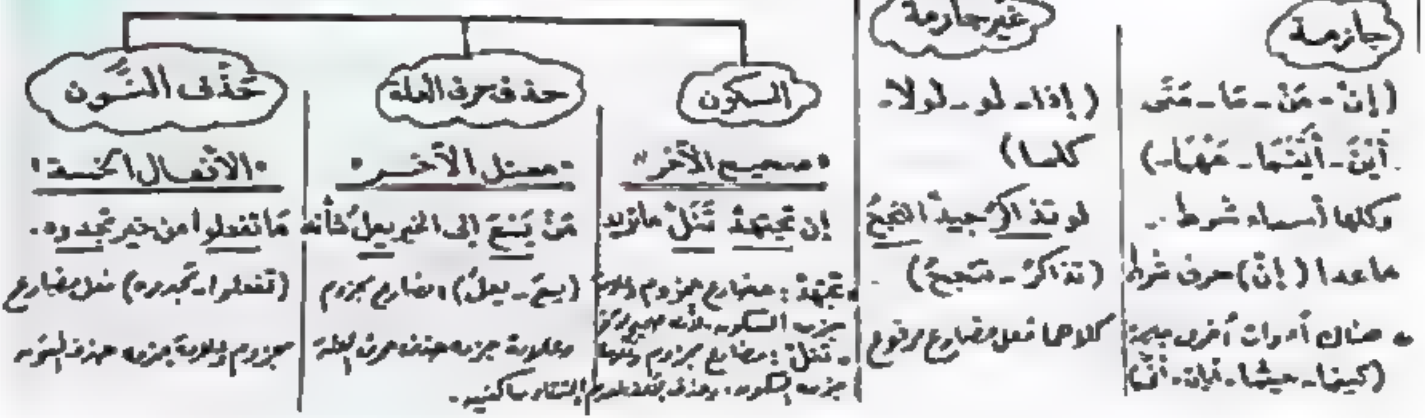 جازمة
(إنْ - مَنْ - مَا - مَتَى
أَيْنَ - أَيْنَمَا - مَهْمَا -)
وكلها أسماء شرط ..
ماعدا (إنْ) حرف شرط
هناك أدوات أخرى جازمة
(كيفما - حيثما - أيان - أنَّى)
غير جازمة
(إذا - لو - لولا -
كلما)
لو تذاكرُ جيداً تنجحُ
(تذاكرُ - تنجحُ)
كلاهما فعل مضارع مرفوع
السكون
"صحيح الآخر"
إن تجتهدْ تَنَلْ ماتريد
تجتهدْ : مضارع مجزوم وعلامة
جزمه السكون لأنه صحيح الآخر
تنلْ : مضارع مجزوم وعلامة
جزمه السكون ، وحذف لالتقاء ساكنين .
حذف حرف العلة
"معتل الآخر"
مَنْ يَسْعَ إلى الخير يعلُ شأنه
(يسعَ - يعلُ) مضارع مجزوم
وعلامة جزمه حذف حرف العلة
حَذْف النُّون
"الأفعال الخمسة"
مَا تفعلوا من خير تجدوه .
(تفعلوا - تجدوه) فعل مضارع
مجزوم وعلامة جزمه حذف النون